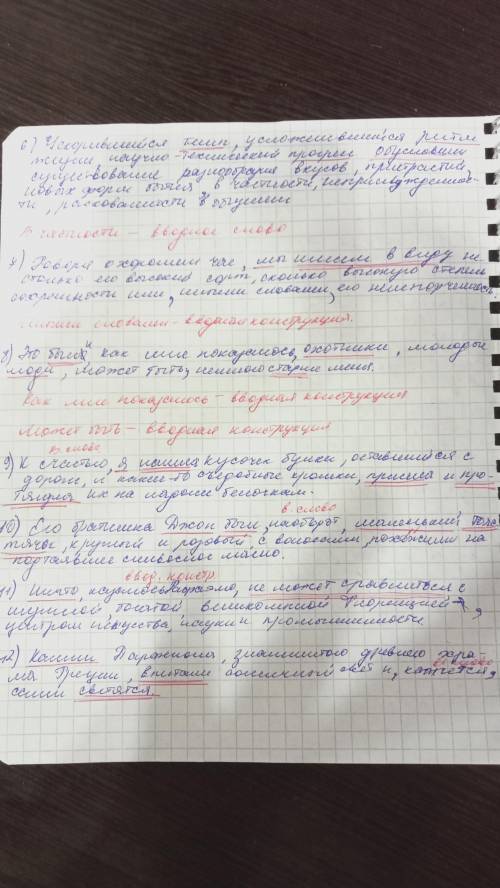 6) Ускорившийся темп, усложнившийся ритм
жизни, научно-технический прогресс обусловили
существование разнообразия вкусов, пристрастий,
новых форм бытия и, в частности, непринужденнос-
ти, раскованности в общении
В частности - вводное слово
7) Говоря о хорошем чае, мы имеем в виду не
столько его высокий сорт, сколько высокую степень
сохранности или, иными словами, его неиспорченность.
Иными словами - вводная конструкция.
8) Это были, как мне показалось, охотники, молодые
люди, может быть, немного старше меня.
Как мне показалось - вводная конструкция
Может быть - вводная конструкция
в. слово
9) К счастью, я нашла кусочек булки, оставшийся с
дороги, и какие-то съедобные крошки, пришла и про-
тянула их на ладони белочкам.
в. слово
10) Его батюшка Джон был, наоборот, маленький, 
тячы, круглый и розовый с волосами, похожими на
подтаявшее сливочное масло.
ввод. констр.
11) Ничто, не может сравниться с
шумной богатой великолепной Флоренцией,
центром искусства, науки и промышленности.
12) Камни Парфенона, знаменитого древнего хра-
в. слово
ма Греции, впитали солнечный свет и, кажется,
сами светятся.